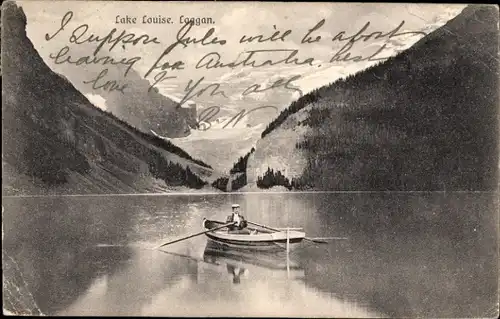 Lake Louise. Laggan.
I Suppose Jules will be about
leaving for Australia. best
love to you all